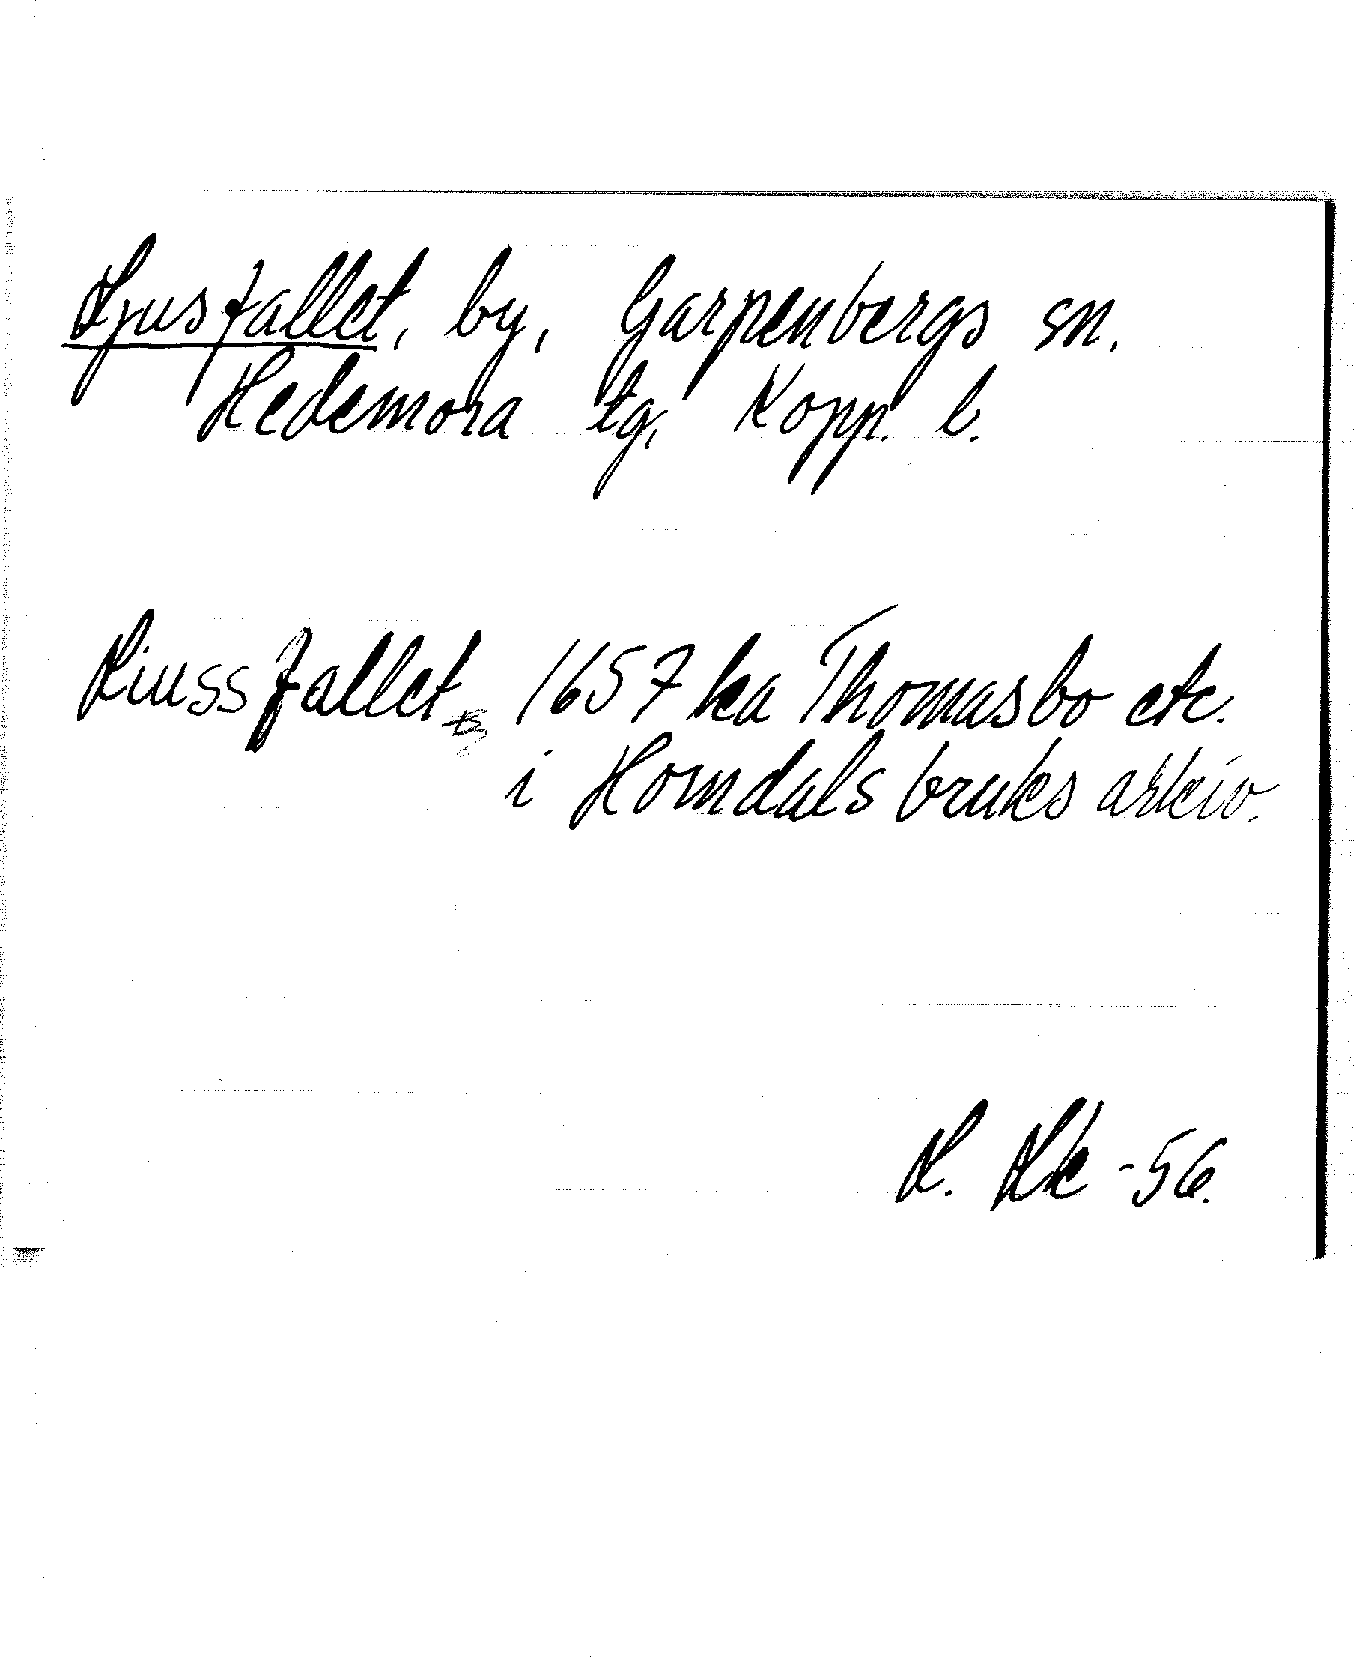 Ljusfallet, by, Garpenbergs sn.
Hedemora tg, Kopp. l.
Liussfallet 1657 ka Thomasbo etc.
i Horndals bruks arkiv.
L. Lk -56.